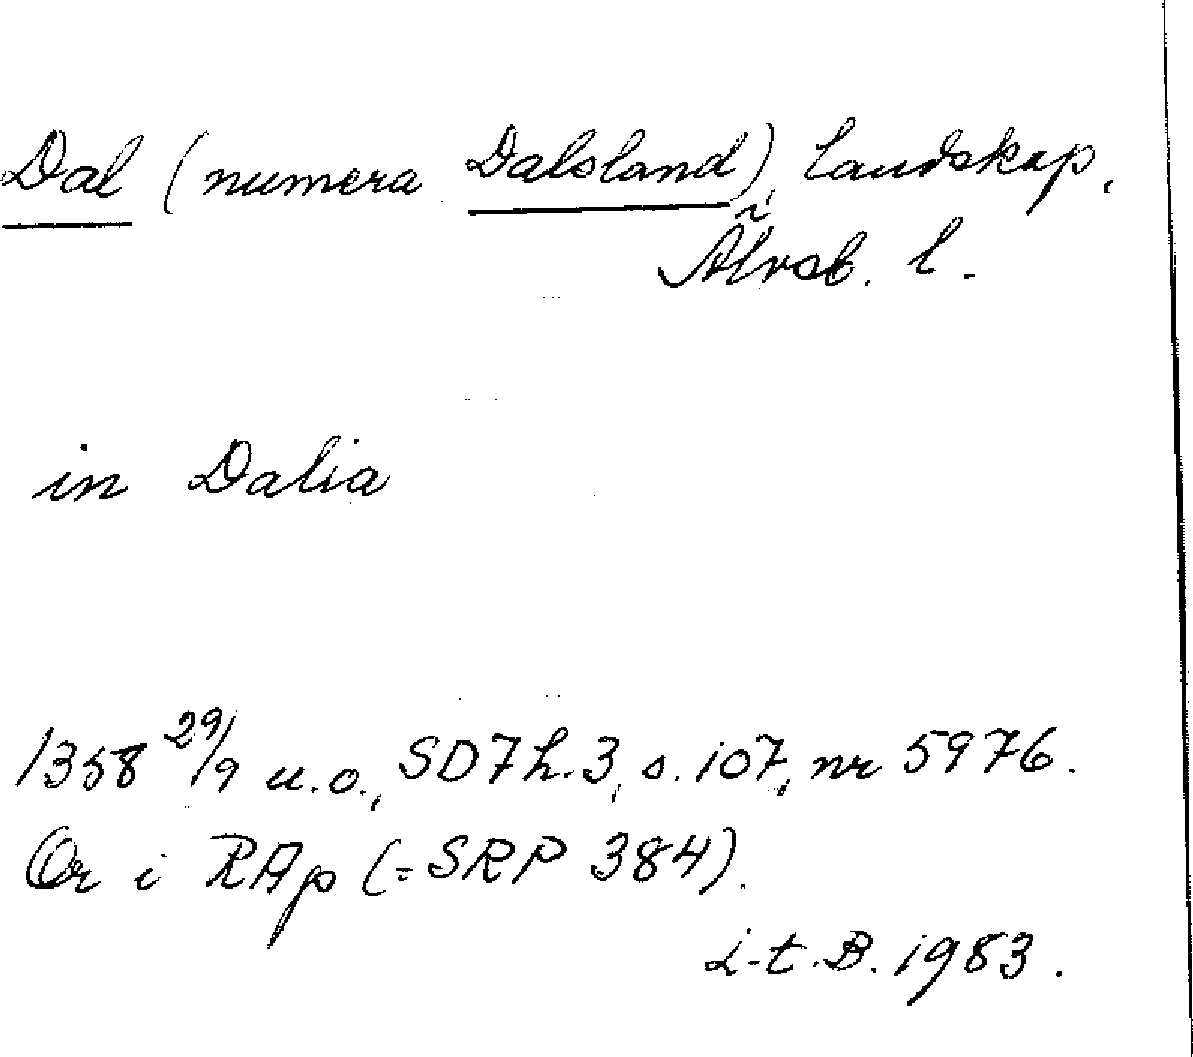 Dal (numera Dalsland), landskap,
Älvsb. l.
in Dalia
1358 29/9 u.o., SD7h.3, s. 107, nr 5976.
Or i RAp (=SRP 384).
i.t.B. 1983.